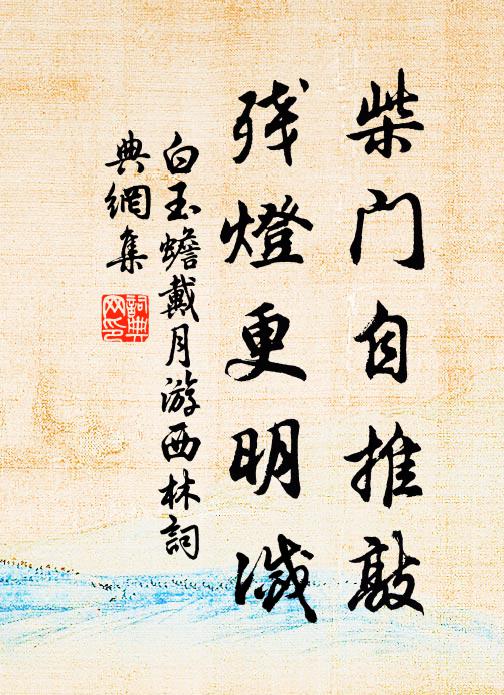 柴门自推敲
残燈更明滅
白玉蟾戴月游西林詞
典網集
詞典
网印